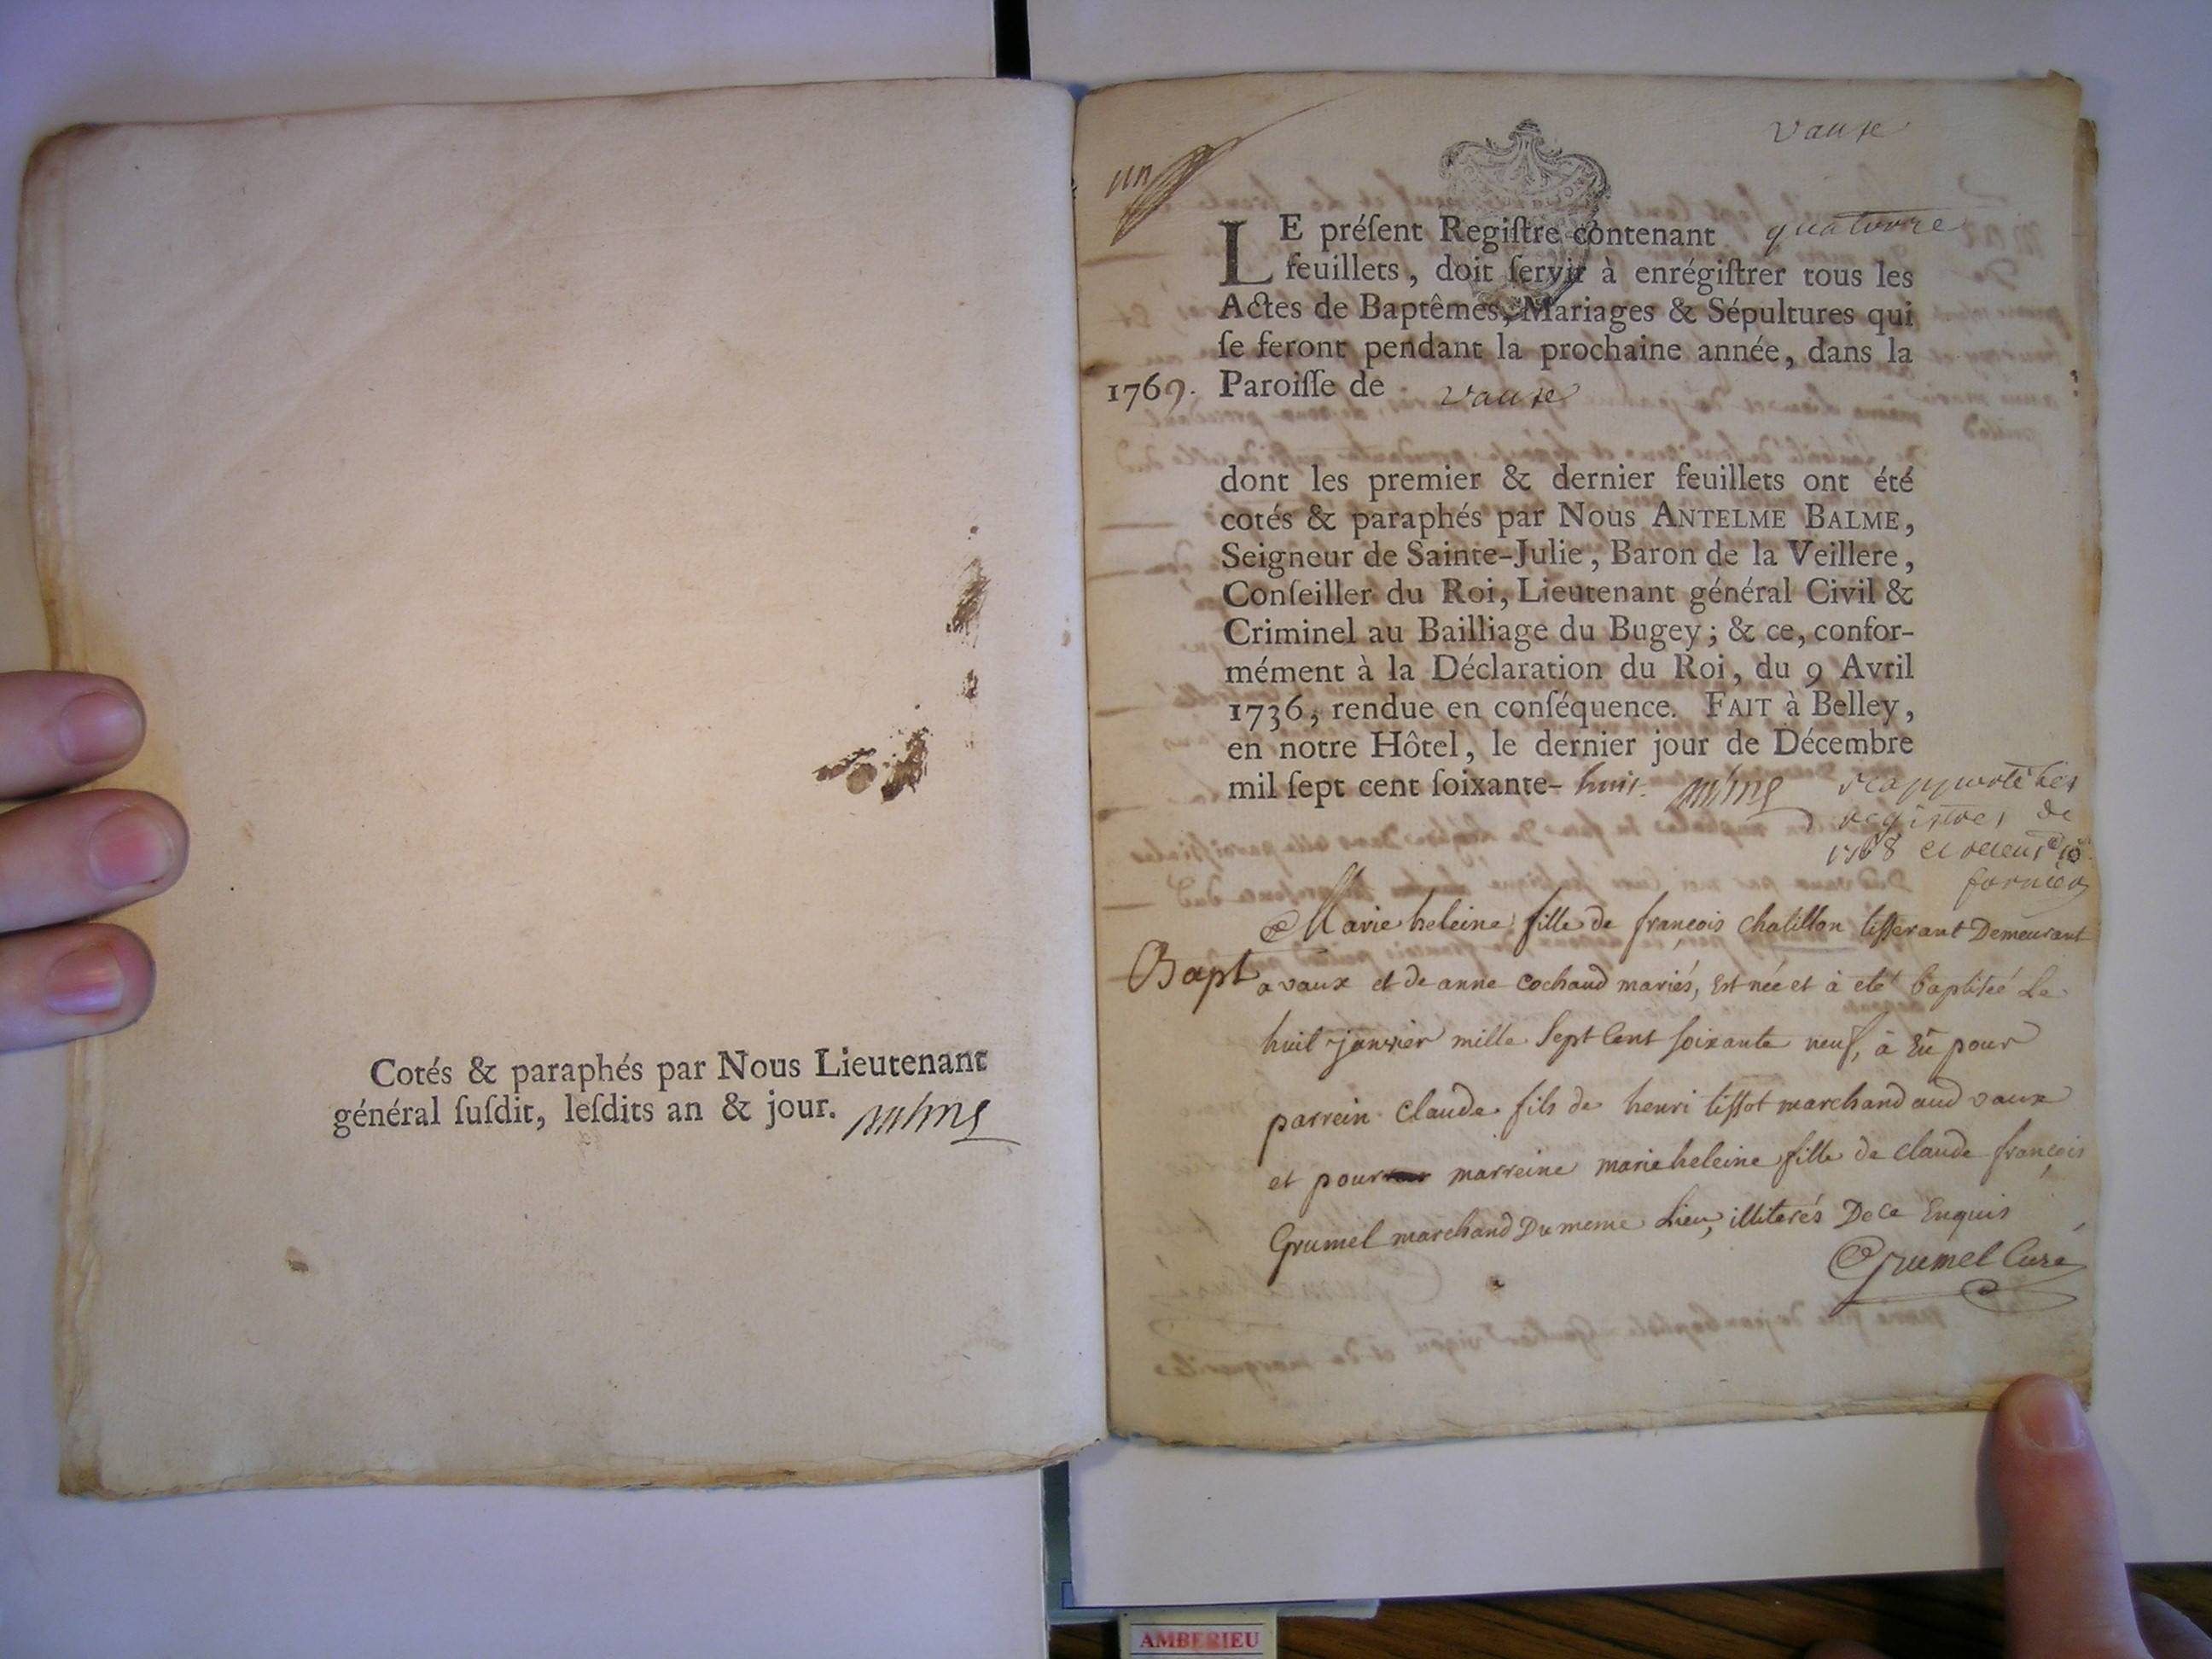 Cotés & paraphés par Nous Lieutenant
général ſuſdit, leſdits an & jour.
vaux
un
LE préſent Regiſtre contenant quatorze
feuillets, doit ſervir à enrégiſtrer tous les
Actes de Baptêmes, Mariages & Sépultures qui
ſe feront pendant la prochaine année, dans la
1769. Paroiſſe de vaux
dont les premier & dernier feuillets ont été
cotés & paraphés par Nous ANTELME BALME,
Seigneur de Sainte-Julie, Baron de la Veillere,
Conſeiller du Roi, Lieutenant général Civil &
Criminel au Bailliage du Bugey; & ce, confor-
mément à la Déclaration du Roi, du 9 Avril
1736, rendue en conſéquence. FAIT à Belley,
en notre Hôtel, le dernier jour de Décembre
mil ſept cent ſoixante-huit.
rapporté les
registres de
1768 et
Marie heleine fille de francois chatillon tisserant Demeurant
Bapt a vaux et de anne cochaud mariés, Est née et à eté baptiseé Le
huit janvier mille Sept Cent soixante neuf, à Eü pour
parrein claude fils de henri tissot marchand aud vaux
et pour marreine marie heleine fille de claude françois
Grumel marchand Du meme Lieu, illiterés De ce Enquis
Grumel Curé
AMBERIEU